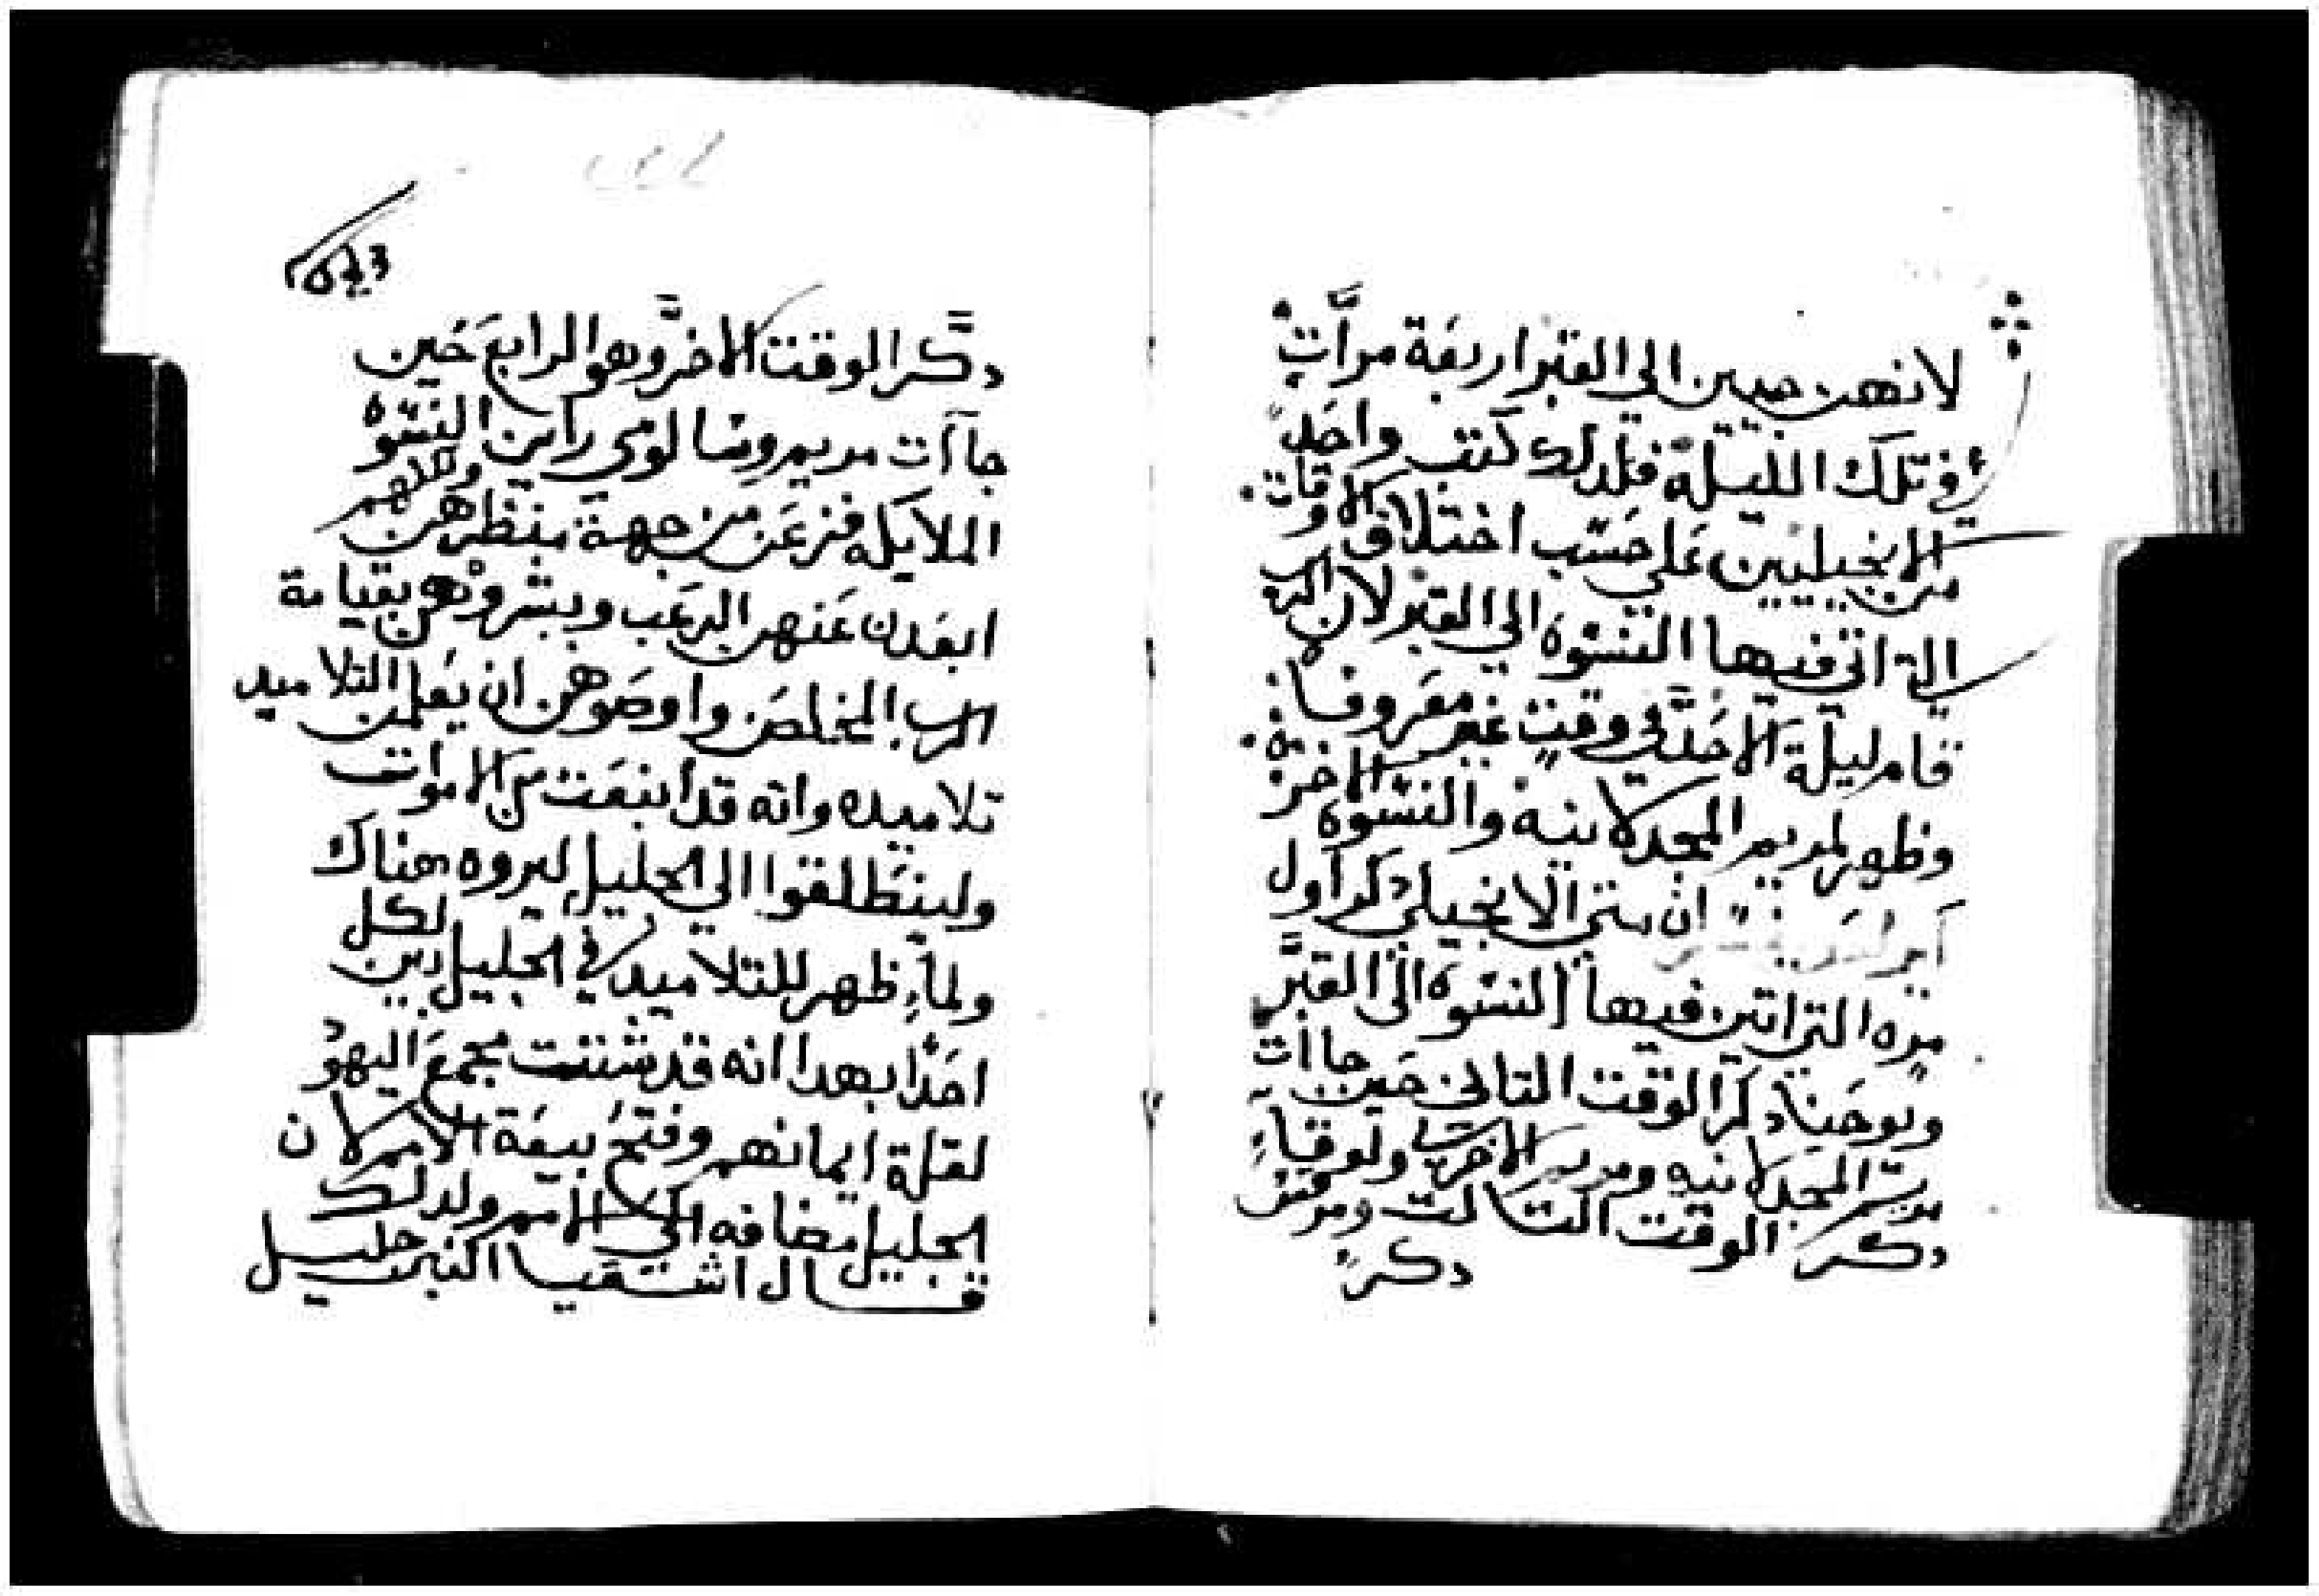 لانهن جيين الي القبر اربعة مرات
في تلك الليلة فلدلك كتب واحد
من الانجيليين علي حسب اختلاف الاوقات
التي اتي فيها النسوه الي القبر لان الرب
قام ليلة الاحد في وقت غير معروف
وظهر لمريم المجدلانية والنسوه الاخر
ان متي الانجيلي دكر اول
مره التي اتين فيها النسوه الي القبر
ويوحنا دكر الوقت التاني حين جاات
مريم المجدلانيه ومريم الاخري ولوقا
دكر الوقت التالت ومرقس
دكر
دكر الوقت الاخر وهو الرابع حين
جاآت مريم وسالومي راين النسوه
الملايكه فزعن من جهة منظرهن وكلهم
ابعدن عنهن الرعب وبشروهن بقيامة
الرب المخلص واوصوهن ان يعلمن التلاميد
تلاميده وانه قد انبعت من الاموات
ولينطلقوا الي الجليل ليروه هناك
ولما ظهر للتلاميد في الجليل بين لكل
احدا بهدا انه قد شتت مجمع اليهود
لقلة ايمانهم وفتح بيعة الامم لان
الجليل مضافه الي الامم ولدلك
قال اشعيا النبي جليل